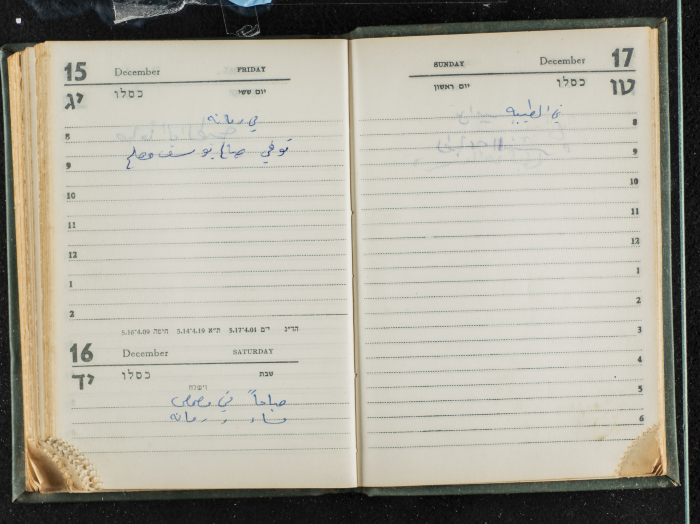 15 December FRIDAY
יג כסלו יום ששי
في رمانه
8
توفي صالح يوسف مصلح
9
10
11
12
1
2
הדה״נ י־ם 5.17־4.04 ת״א 5.14־4.19 חיפה 5.16־4.09
16 December SATURDAY
יד כסלו שבת
וישלח
صباحاً في مصمص
مساء رمانه
SUNDAY December 17
יום ראשון כסלו טו
في الطيبه
8
9
10
11
12
1
2
3
4
5
6